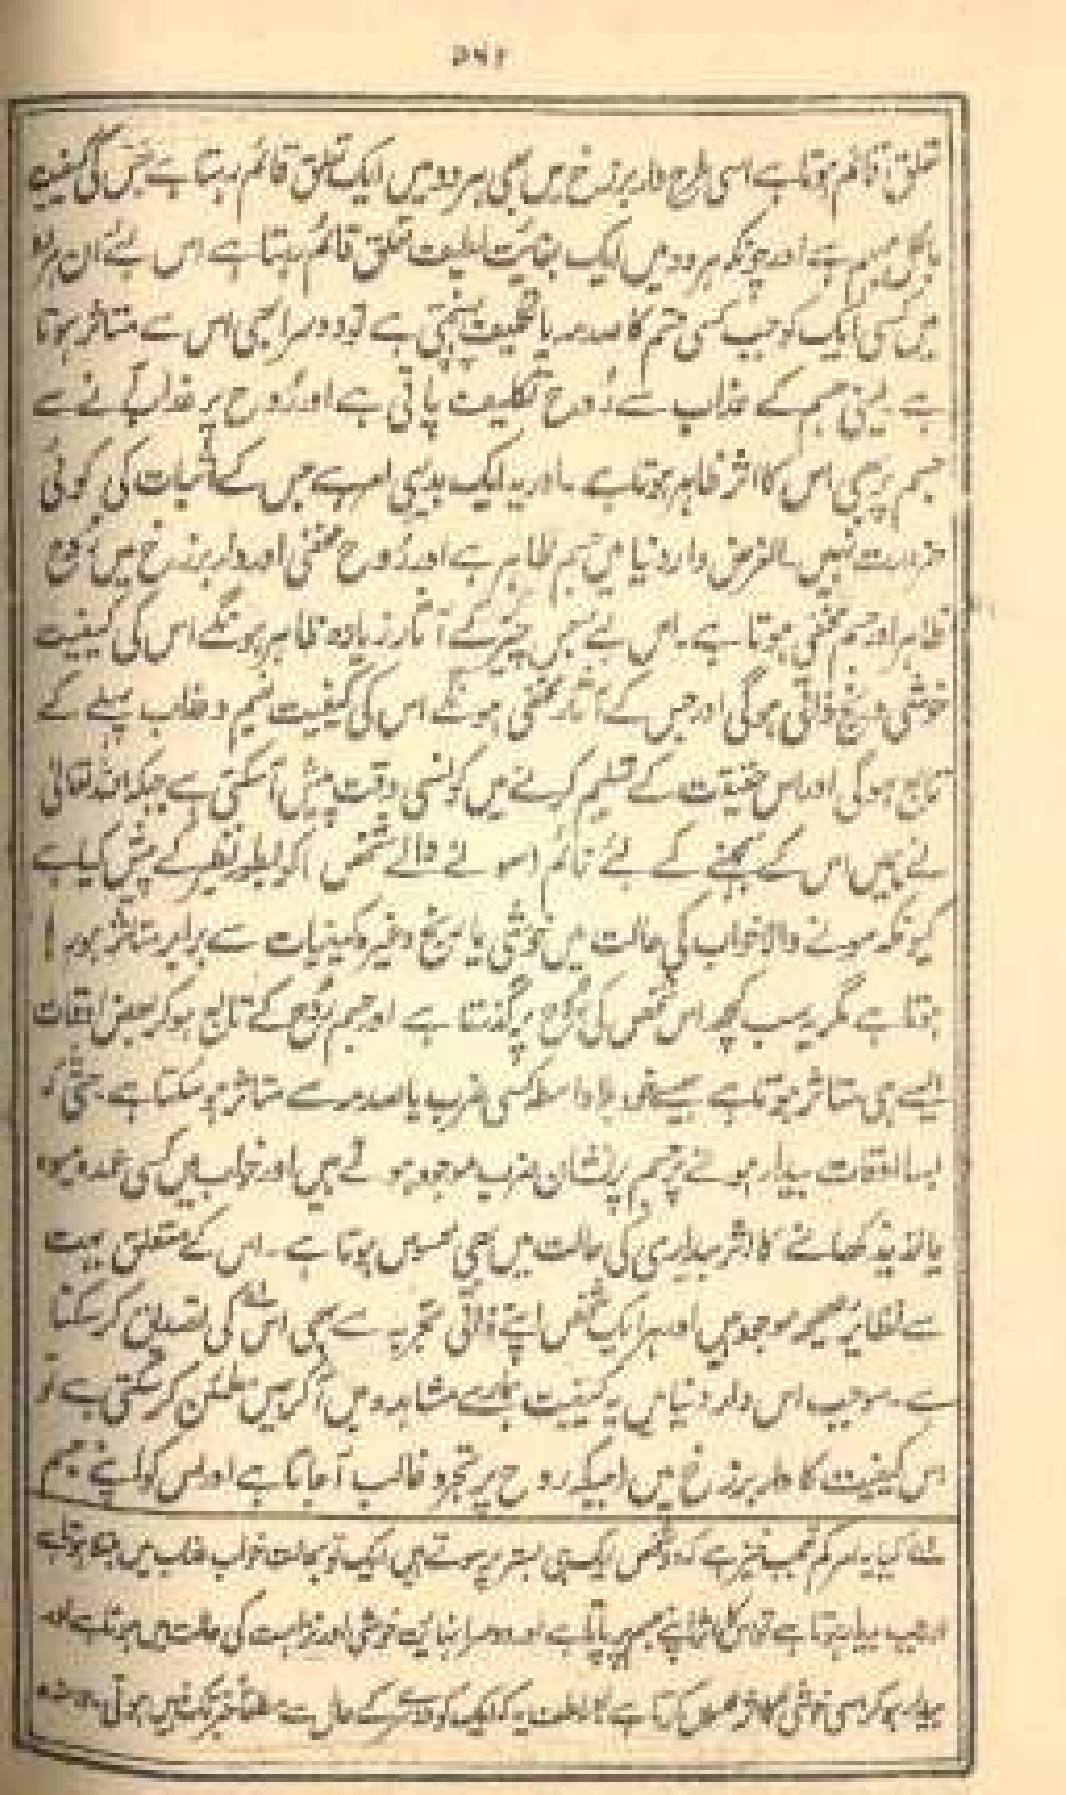 ۵۶۲
تعلق قائم ہوتا ہے اسی طرح دار برزخ میں بھی ہر دو میں ایک تعلق قائم رہتا ہے جس کی کیفیت
بالکل مبہم ہے اور چونکہ ہر دو میں ایک بغائت لطیف تعلق قائم رہتا ہے اس لئے ان ہر دو
میں کسی ایک کو جب کسی قسم کا صدمہ یا تکلیف پہنچتی ہے تو دوسرا بھی اس سے متاثر ہوتا
ہے یعنی جسم کے عذاب سے رُوح تکلیف پاتی ہے اور رُوح پر عذاب آنے سے
جسم پر بھی اس کا اثر ظاہر ہوتا ہے ۔ اور یہ ایک بدیہی امر ہے جس کے اثبات کی کوئی
ضرورت نہیں ۔ الغرض دار دنیا میں جسم ظاہر ہے اور رُوح مخفی اور دار برزخ میں رُوح
ظاہر اور جسم مخفی ہوتا ہے ۔ اس لئے جس چیز کے آثار زیادہ ظاہر ہونگے اس کی کیفیت
خوشی و رنج ذاتی ہوگی اور جس کے آثار مخفی ہونگے اس کی کیفیت نعیم و عذاب پہلے کے
تابع ہوگی اور اس حقیقت کے تسلیم کرنے میں کونسی دقت پیش آسکتی ہے جبکہ اللہ تعالیٰ
نے ہمیں اس کے سمجھنے کے لئے نائم (سونے والے شخص) کو بطور نظیر کے پیش کیا ہے
کیونکہ سونے والا خواب کی حالت میں خوشی یا رنج وغیرہ کیفیات سے برابر متاثر ہو رہا
ہوتا ہے مگر یہ سب کچھ اس شخص کی رُوح پر گذرتا ہے اور جسم رُوح کے تابع ہو کر بعض اوقات
ایسے ہی متاثر ہوتا ہے جیسے بلا واسطہ کسی ضرب یا صدمہ سے متاثر ہو سکتا ہے ۔ حتیٰ کہ
بسا اوقات بیدار ہونے پر جسم پر نشان ضرب موجود ہوتے ہیں اور خواب میں کسی عمدہ میوہ
یا لذیذ کھانے کا اثر بیداری کی حالت میں بھی محسوس ہوتا ہے ۔ اس کے متعلق بہت
سے نظائر صحیحہ موجود ہیں اور ہر ایک شخص اپنے ذاتی تجربہ سے بھی اس کی تصدیق کر سکتا
ہے ۔ سو جب اس دار دنیا میں یہ کیفیت ہمارے مشاہدہ میں آکر ہمیں مطمئن کر سکتی ہے تو
اس کیفیت کا دار برزخ میں (جبکہ روح پر تجرد غالب آجاتا ہے اور اس کو اپنے جسم
کیا یہ امر کم تعجب خیز ہے کہ دو شخص ایک ہی بستر پر سوتے ہیں ایک تو بحالت خواب عذاب میں مبتلا ہوتا ہے
اور جب بیدار ہوتا ہے تو اس کا اثر اپنے جسم پر پاتا ہے اور دوسرا نہایت خوشی اور نزاہت کی حالت میں ہوتا ہے اور
بیدار ہو کر اسی خوشی کا اثر محسوس کرتا ہے اور لطف یہ کہ ایک کو دوسرے کے حال سے مطلقاً خبر تک نہیں ہوتی